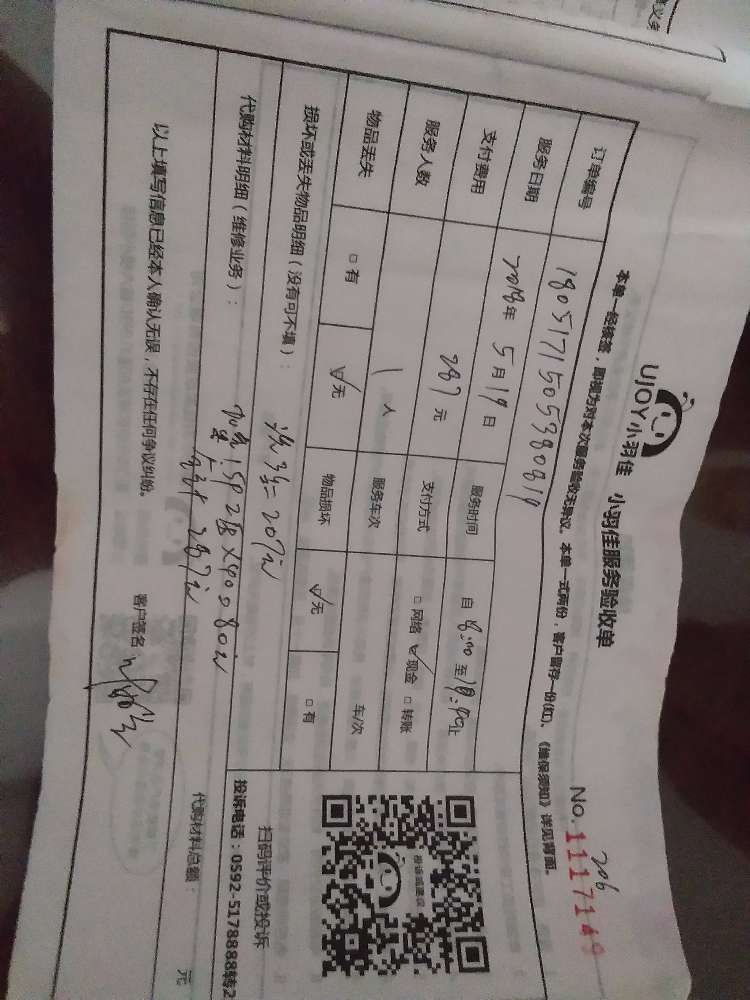 UJOY小羽佳 小羽佳服务验收单
No.11117149
206
本单一经接签，即视为对本次服务验收无异议。本单一式两份，客户留存一份(红)、《维保须知》详见背面。
订单编号 1805171505380819
服务日期 2018年 5月19日 服务时间 自 18:00 至 19:40止
支付费用 287元 支付方式 □网络 ☑现金 □转账
服务人数 1人 服务车次 车/次
物品丢失 □有 ☑无 物品损坏 ☑无 □有
扫码评价或投诉
投诉电话：0592-5178888转2
损坏或丢失物品明细（没有可不填）：
代购材料明细（维修业务）：
代购材料总额： 元
以上填写信息已经本人确认无误，不存在任何争议纠纷。
客户签名：